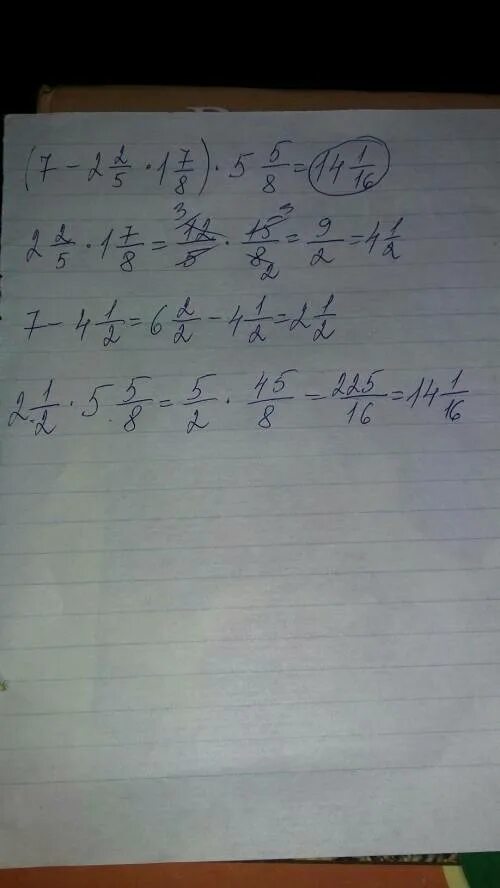 (7 - 2 2/5 · 1 7/8) · 5 5/8 = 14 1/16
2 2/5 · 1 7/8 = 12/5 · 15/8 = 9/2 = 4 1/2
7 - 4 1/2 = 6 2/2 - 4 1/2 = 2 1/2
2 1/2 · 5 5/8 = 5/2 · 45/8 = 225/16 = 14 1/16